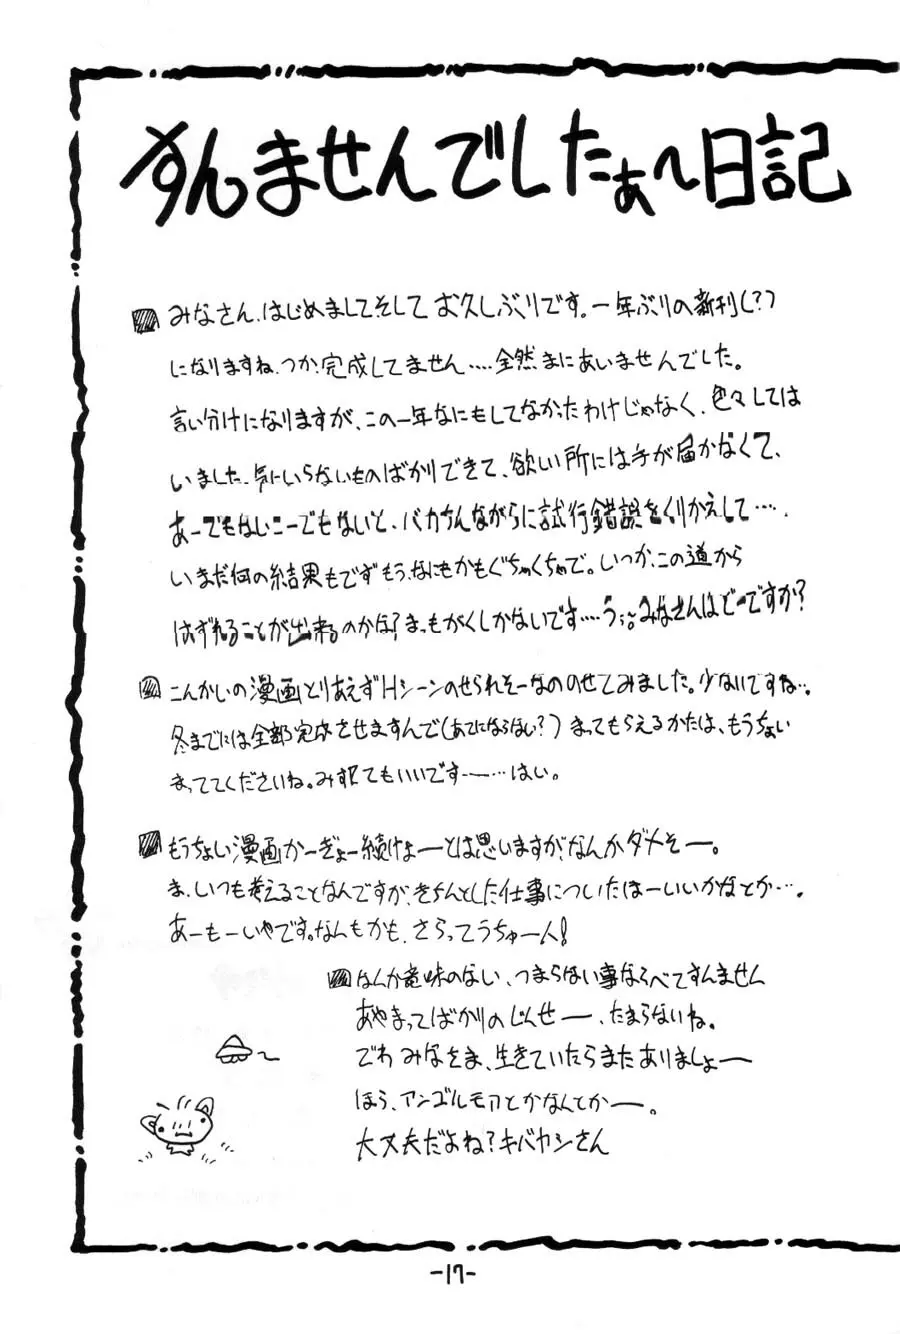 すんませんでしたぁ〜日記
みなさん、はじめまして、そして お久しぶりです。一年ぶりの新刊(?)
になりますね、つか、完成してません‥‥全然まにあいませんでした。
言い分けになりますが、この一年なにもしてなかったわけじゃなく、色々しては
いました。気にいらないものばかりできて、欲しい所には手が届かなくて、
あーでもないこーでもないと、バカみんながらに試行錯誤をくりかえして‥‥、
いまだ何の結果もでず もう、なにもかもぐちゃくちゃで。いつか、この道から
はずれることが出来るのかな?まっもがくしかないです‥‥う゛みなさんはどーですか?
こんかいの漫画とりあえずHシーンのせられそーなののせてみました。少ないですね‥。
冬までには全部完成させますんで(あてにならない?)まってもらえるかたは、もうちょい
まっててくださいね。みすてもいいですー‥‥はい。
もうちょい漫画かーぎょー続けょーとは思いますが、なんかダメそー。
ま、いつも考えることなんですが、きちんとした仕事についたほーいいかなとか‥‥。
あーもーいやです。なんもかも、さらってうちゅー人!
なんか意味のない、つまらない事ならべてすんません
あやまってばかりのじんせー、たまらないね。
でわ みなさま、生きていたらまたありましょー
ほら、アンゴルモアとかなんとかー。
大丈夫だよね?キバヤシさん
-17-